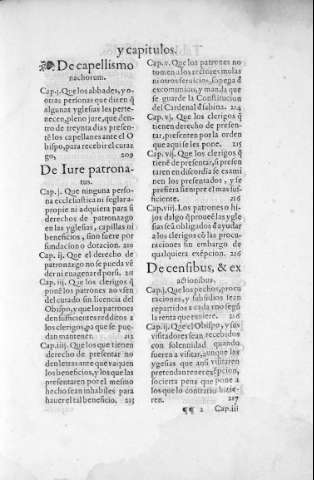 y capitulos.
De capellis mo
nachorum.
Cap.j. Que los abbades, y no
otras personas que dizen q̃
algunas yglesias les perte-
necen, pleno jure, que den-
tro de treynta dias presen-
tẽ los capellanes ante el O
bispo, para recebir el cura
zgo, 209
De Iure patrona-
tus.
Cap.j. Que ninguna perso
na ecclesiastica ni seglar a-
propie ni adquiera para si
derechos de patronazgo
en las yglesias, capillas ni
beneficios, sino fuere por
fundacion o dotacion. 210
Cap. ij. Que el derecho de
patronazgo no se pueda vẽ
der ni enagenar d'por si. 211
Cap. iij. Que los clerigos q̃
ponẽ los patrones no vsen
del curado sin licencia del
Obispo, y que los patrones
den sufficientes reditos a
los clerigos, pa que se pue-
dan mantener. 213
Cap. iiij. Que los que tienen
derecho de presentar no
den letras ante que vaquen
los beneficios, y los que las
presentaren por el mesmo
hecho sean inhabiles para
hauer el tal beneficio. 213
Cap. v. Que los patrones no
tomen a los rocines ni mulas
ni otros seruicios, so pena d'
excommunion, y manda que
se guarde la Constitucion
del Cardenal d'Sabina. 214
Cap. vj. Que los clerigos q̃
tienen derecho de presen-
tar, presenten por la orden
que aqui se les pone. 215
Cap. vij. Que los clerigos q̃
tienẽ de presentar, si presen
taren en discordia se exami
nen los presentados, y se
prefiera siempre el mas suf-
ficiente. 216
Cap. viij. Los patronos o hi-
jos dalgo q̃ prouẽe las ygle
sias sea obligados d'ayudar
a los clerigos cõ las procu-
raciones sin embargo de
qualquiera exẽpcion. 216
De censibus, & ex
actionibus.
Cap.j. Que los pechos, procu
raciones, y subsidios sean
repartidos a cada vno segũ
la renta que tuuiere. 216
Cap. ij. Que el Obispo, y sus
visitadores sean recebidos
con solennidad quando
fueren a visitar, aunque las
ygesias que assi visitaren
pretendan tener exẽpcion,
so cierta pena que pone a
los que lo contrario hizie-
ren. 217
¶¶ 2 Cap. iij